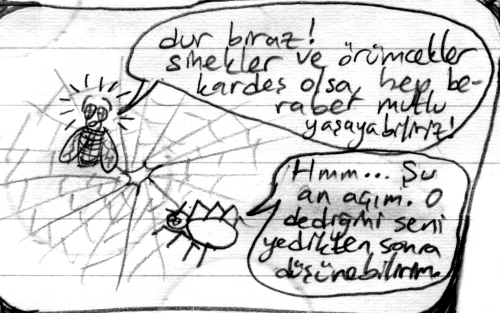 dur biraz!
sinekler ve örümcekler
kardeş olsa, hep be-
raber mutlu
yaşayabiliriz!
Hmm... Şu
an açım. O
dediğini seni
yedikten sonra
düşünebilirim.